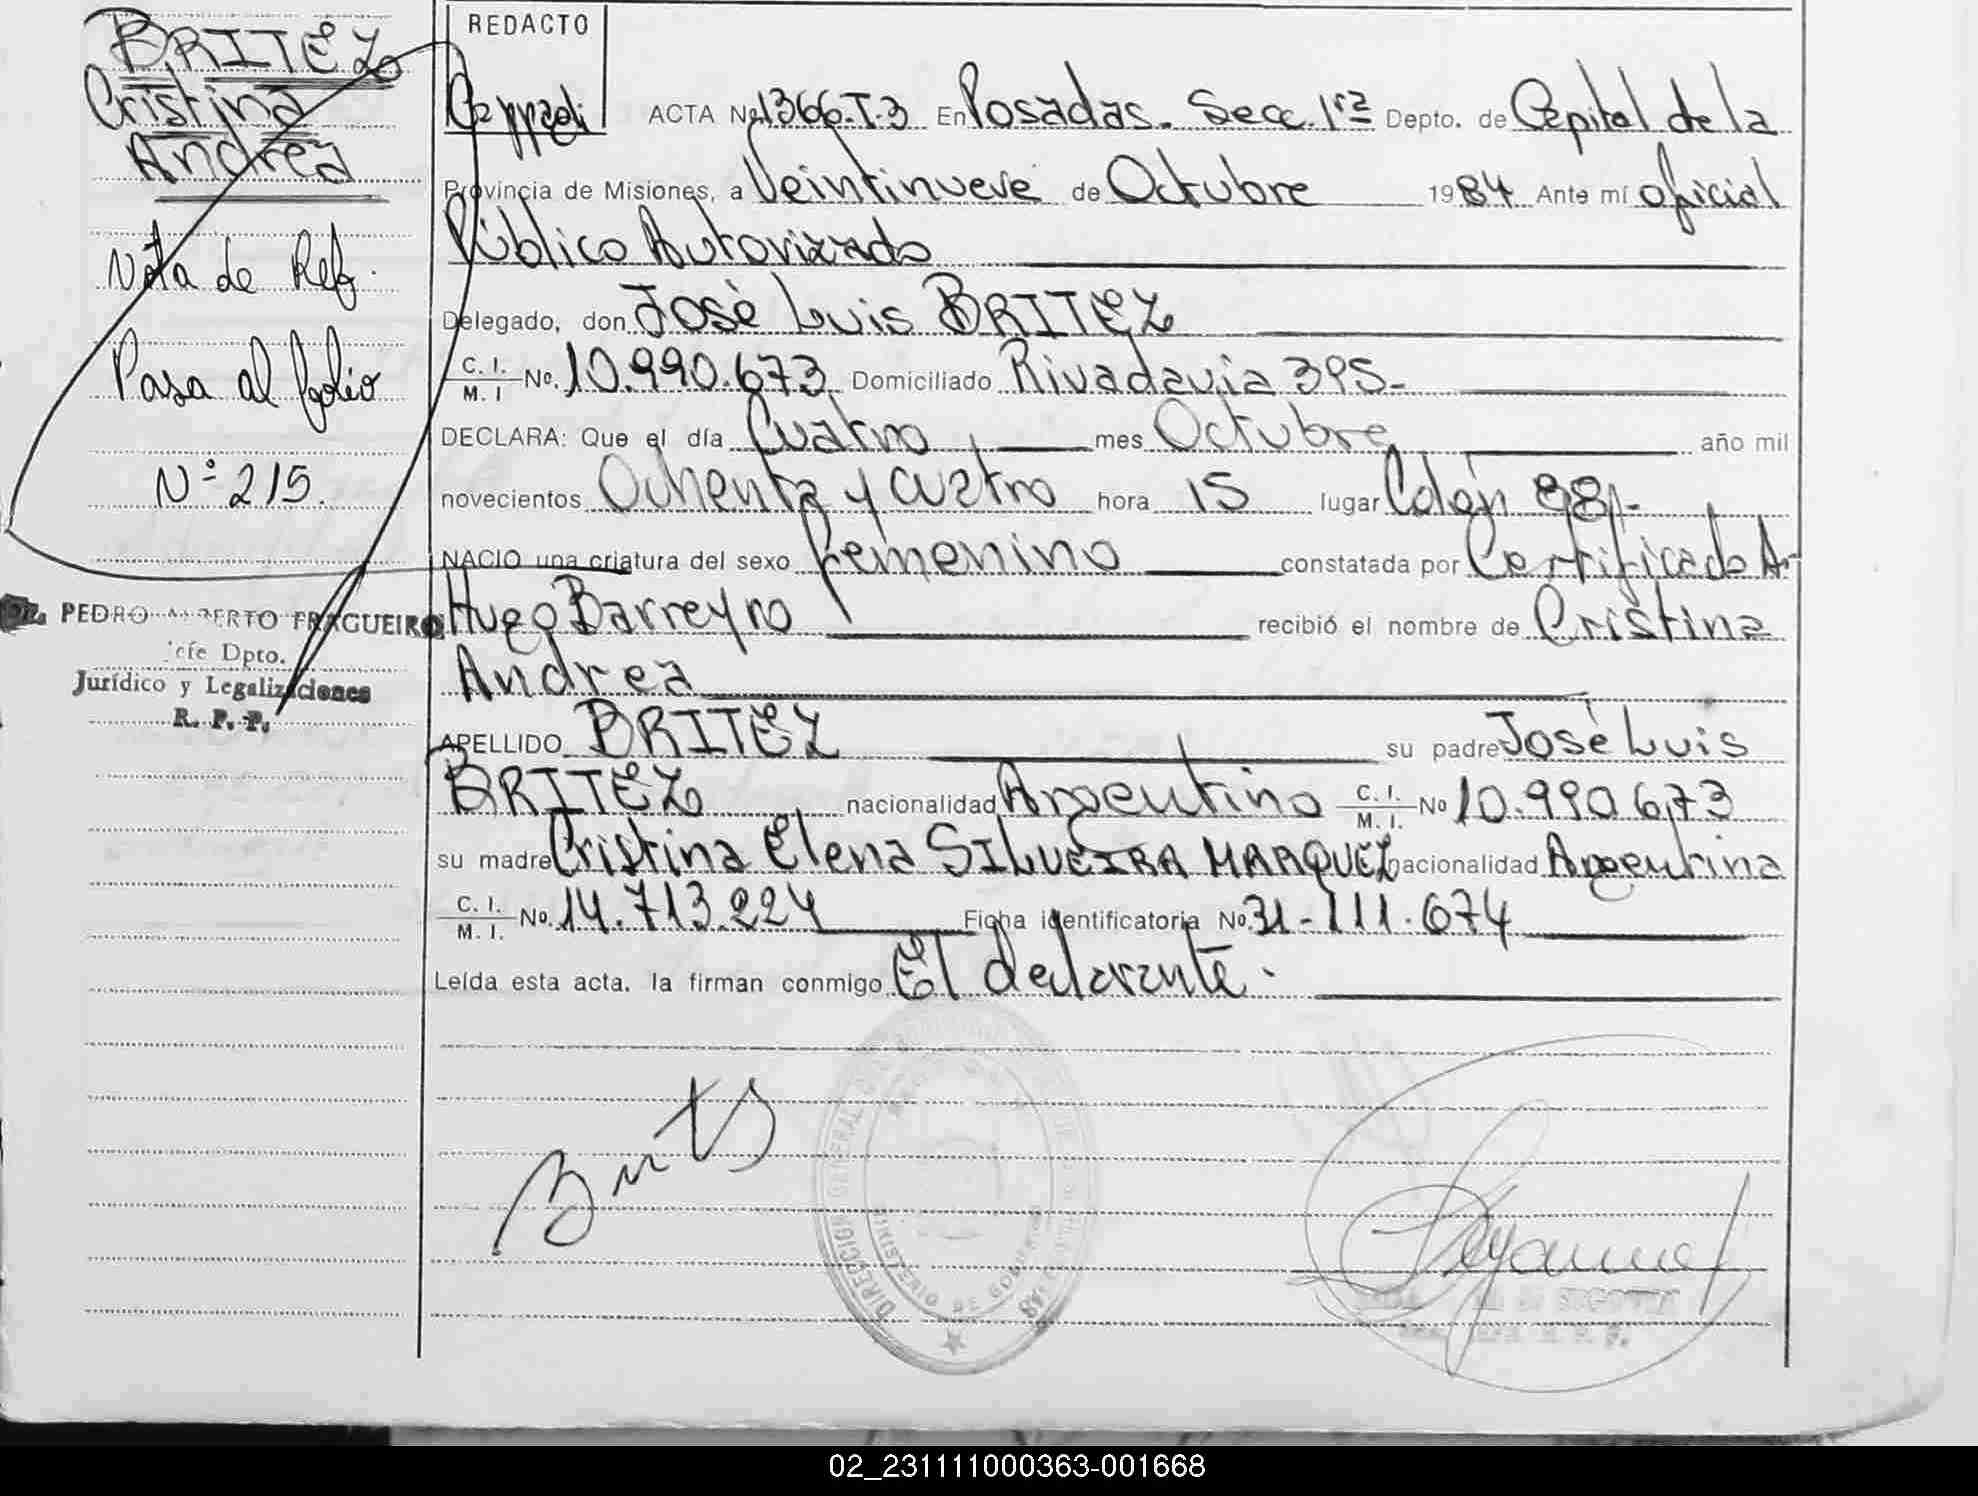 BRITEZ
Cristina
Andrea
Nota de Ref.
Pasa al folio
Nº 215.
PEDRO ALBERTO FRAGUEIRO
Jefe Dpto.
Jurídico y Legalizaciones
R. P. P.
REDACTO
ACTA Nº 1366-T-3 En Posadas. Secc. 1ra Depto. de Capital de la
Provincia de Misiones, a Veintinueve de Octubre 1984 Ante mí Oficial
Público Autorizado
Delegado, don José Luis BRITEZ
C. I. M. I Nº. 10.990.673 Domiciliado Rivadavia 395-
DECLARA: Que el día Cuatro mes Octubre año mil
novecientos Ochenta y cuatro hora 15 lugar Colón 981-
NACIO una criatura del sexo femenino constatada por Certificado A-
Hugo Barreyro recibió el nombre de Cristina
Andrea
APELLIDO BRITEZ su padre José Luis
BRITEZ nacionalidad Argentino C. I. M. I. Nº 10.990.673
su madre Cristina Elena SILVEIRA MARQUEZ nacionalidad Argentina
C. I. M. I. Nº. 14.713.224 Ficha identificatoria Nº. 31-111.674
Leída esta acta, la firman conmigo El declarante.
DIRECCION GENERAL
MINISTERIO DE GOBIERNO
SEGOVIA
02_231111000363-001668